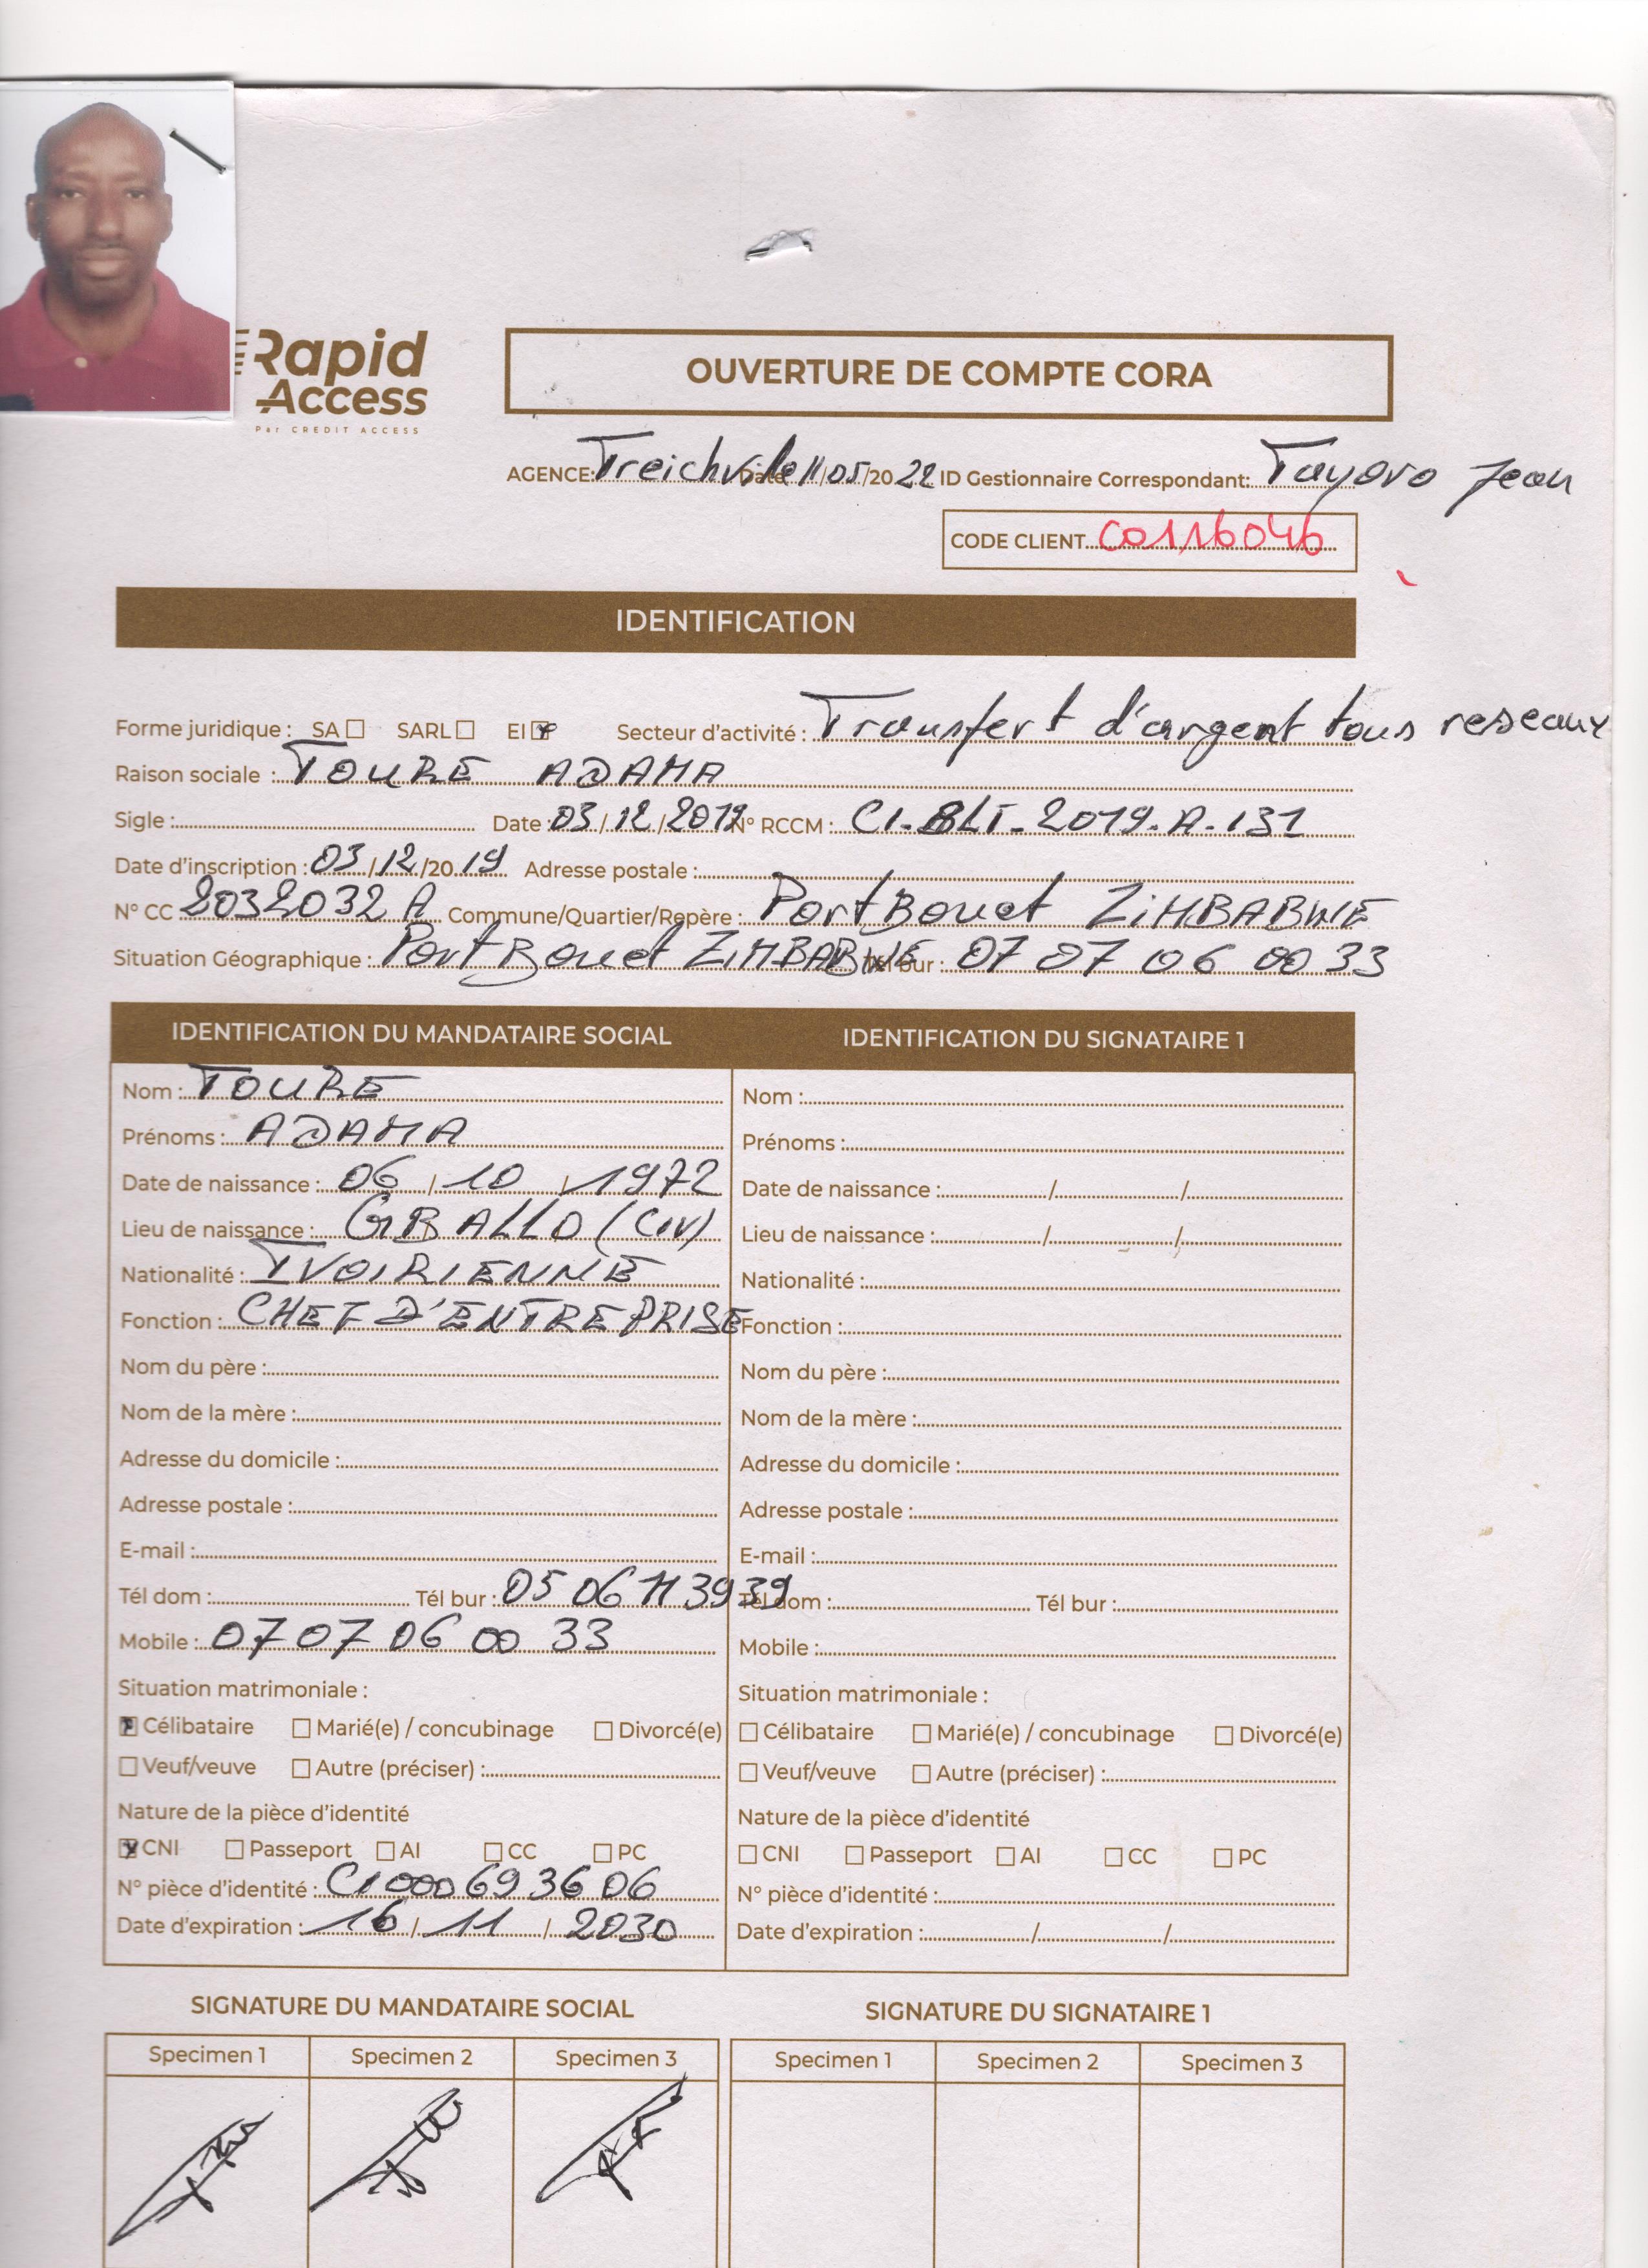 Rapid
Access
Par CREDIT ACCESS
OUVERTURE DE COMPTE CORA
AGENCE: Treichville Date 11/05/2022 ID Gestionnaire Correspondant: Tayoro Jean
CODE CLIENT C0116046
IDENTIFICATION
Forme juridique : SA ☐ SARL ☐ EI ☒ Secteur d'activité : Transfert d'argent tous reseaux
Raison sociale : TOURE ADAMA
Sigle : Date 03/12/2019 N° RCCM : CI-BLI-2019-A-131
Date d'inscription : 03/12/2019 Adresse postale :
N° CC 2032032 A Commune/Quartier/Repère : Port Bouet ZIMBABWE
Situation Géographique : Port Bouet ZIMBABWE Tél bur : 07 07 06 00 33
IDENTIFICATION DU MANDATAIRE SOCIAL IDENTIFICATION DU SIGNATAIRE 1
Nom : TOURE Nom :
Prénoms : ADAMA Prénoms :
Date de naissance : 06/10/1972 Date de naissance : / /
Lieu de naissance : GBALLO (CIV) Lieu de naissance : / /
Nationalité : IVOIRIENNE Nationalité :
Fonction : CHEF D'ENTREPRISE Fonction :
Nom du père : Nom du père :
Nom de la mère : Nom de la mère :
Adresse du domicile : Adresse du domicile :
Adresse postale : Adresse postale :
E-mail : E-mail :
Tél dom : Tél bur : 05 06 11 39 39 Tél dom : Tél bur :
Mobile : 07 07 06 00 33 Mobile :
Situation matrimoniale : Situation matrimoniale :
☒ Célibataire ☐ Marié(e) / concubinage ☐ Divorcé(e) ☐ Célibataire ☐ Marié(e) / concubinage ☐ Divorcé(e)
☐ Veuf/veuve ☐ Autre (préciser) : ☐ Veuf/veuve ☐ Autre (préciser) :
Nature de la pièce d'identité Nature de la pièce d'identité
☒ CNI ☐ Passeport ☐ AI ☐ CC ☐ PC ☐ CNI ☐ Passeport ☐ AI ☐ CC ☐ PC
N° pièce d'identité : CI000693606 N° pièce d'identité :
Date d'expiration : 16/11/2030 Date d'expiration : / /
SIGNATURE DU MANDATAIRE SOCIAL SIGNATURE DU SIGNATAIRE 1
Specimen 1 Specimen 2 Specimen 3 Specimen 1 Specimen 2 Specimen 3